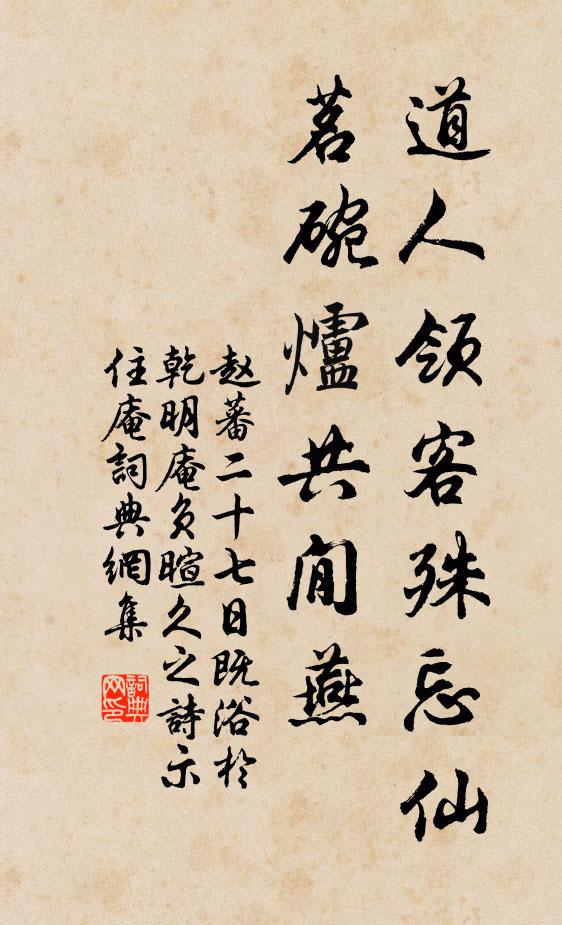 道人領客殊忘仙
茗碗爐共閒燕
赵蕃二十七日既浴於
乾明庵负暄久之詩示
住庵詞典網集
詞典
网印